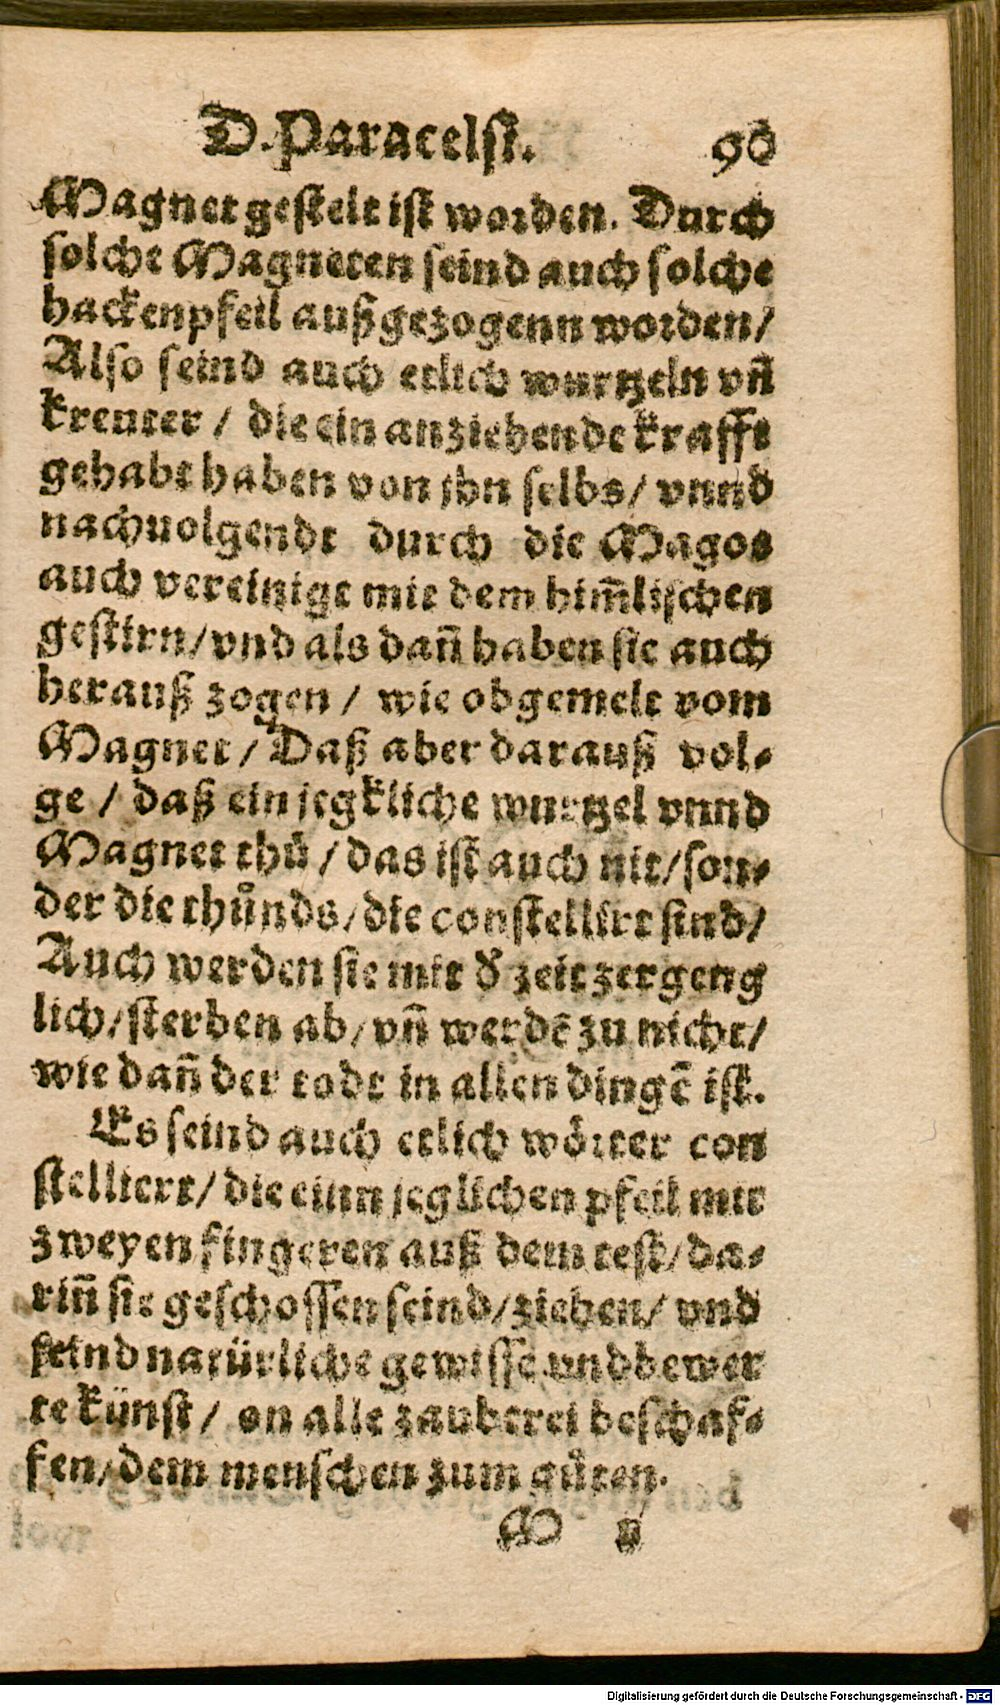 D. Paracelsi. 90
Magnet gestelt ist worden. Durch
solche Magneten seind auch solche
hackenpfeil außgezogenn worden/
Also seind auch etlich wurtzeln vñ
kreuter / die ein anziehende krafft
gehabt haben von jhn selbs/ vnnd
nachuolgendt durch die Magos
auch vereinigt mit dem him̃lischen
gestirn/vnd als dañ haben sie auch
herauß zogen / wie obgemelt vom
Magnet / Daß aber darauß vol-
ge / daß ein jegkliche wurtzel vnnd
Magnet thů / das ist auch nit/son-
der die thůnds/die constellirt sind/
Auch werden sie mit d̕ zeit zergeng
lich/sterben ab/vñ werdẽ zu nicht/
wie dañ der todt in allen dingẽ ist.
Es seind auch etlich wörter con
stelliert/die einn jeglichen pfeil mit
zweyen fingeren auß dem rest/da-
riñ sie geschossen seind/ziehen/ vnd
seind natürliche gewisse vnd bewer
te künst / on alle zauberei beschaf-
fen/dem menschen zum gůten.
M ij
Digitalisierung gefördert durch die Deutsche Forschungsgemeinschaft - DFG